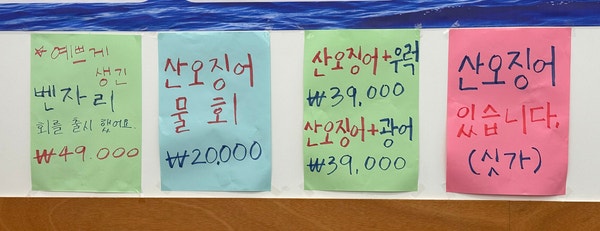 * 예쁘게
생긴
벤자리
회를 출시 했어요.
₩49.000
산오징어
물회
₩20,000
산오징어+우럭
₩39,000
산오징어+광어
₩39,000
산오징어
있습니다.
(싯가)